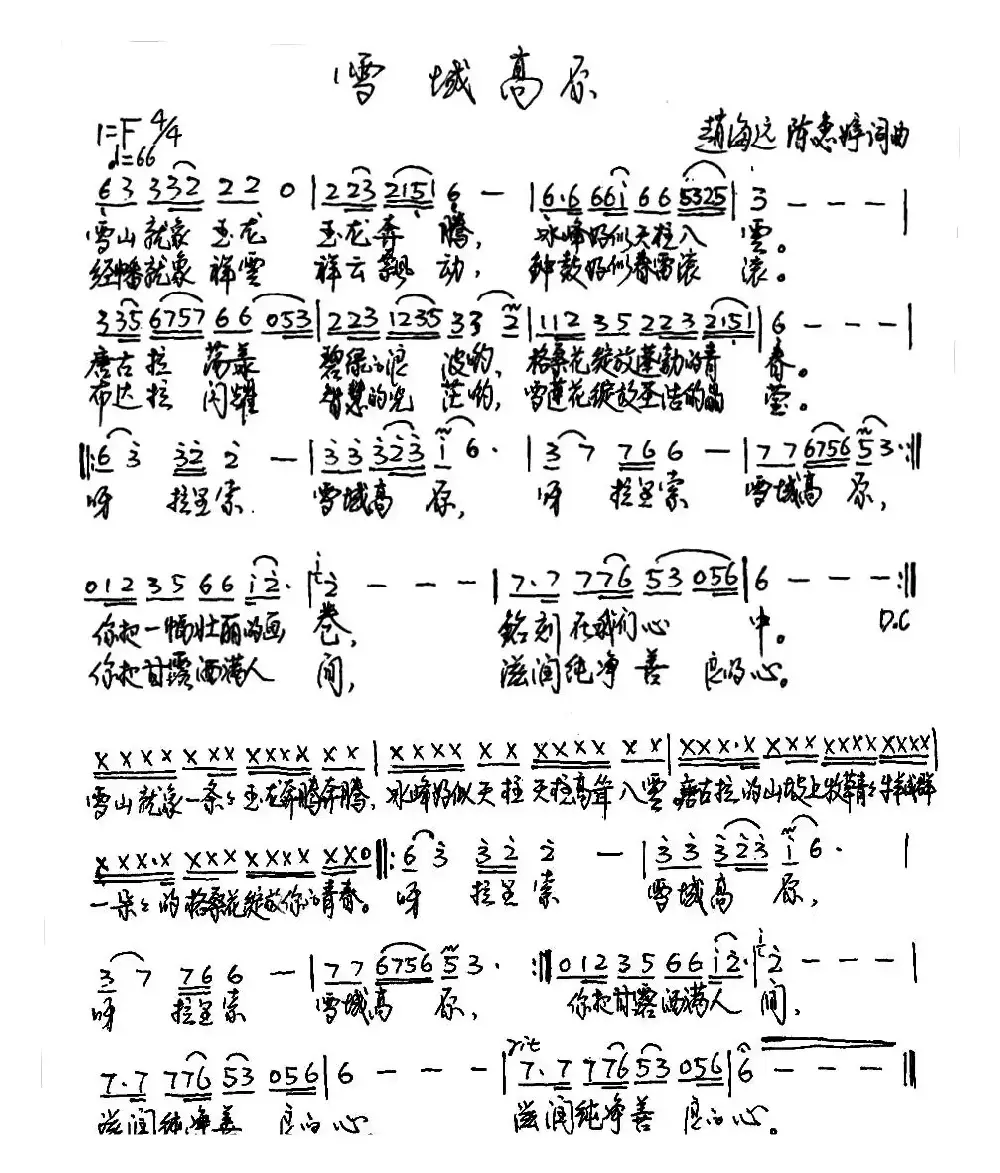 雪域高原
1=F 4/4
♩=66
趙海远 陈惠婷词曲
6 3 3 3 2 2 2 0 | 2 2 3 2 1 5 1 6 — | 6·6 6 6 i 6 6 5 3 2 5 | 3 — — — |
雪山就象玉龙 玉龙奔腾，冰峰好似天柱入雲。
经幡就象祥雲 祥云飘动，钟鼓好似春雷滚滚。
3 3 5 6 7 5 7 6 6 0 5 3 | 2 2 3 1 2 3 5 3 3 2 | 1 1 2 3 5 2 2 3 2 1 5 1 | 6 — — — |
唐古拉荡漾 碧绿的浪波哟，格桑花绽放蓬勃的青春。
布达拉闪耀 智慧的光茫哟，雪莲花绽放圣洁的晶莹。
‖: 6 3 3 2 2 — | 3 3 3 2 3 i 6· | 3 7 7 6 6 — | 7 7 6 7 5 6 5 3· :‖
呀 拉呈索 雪域高原，呀 拉呈索 雪域高原，
0 1 2 3 5 6 6 i 2· | 2 — — — | 7·7 7 7 6 5 3 0 5 6 | 6 — — — :‖
你把一幅壮丽的画卷，铭刻在我们心中。 D.C
你把甘露洒满人间，滋润纯净善良的心。
X X X X X X X X X X X X X | X X X X X X X X X X X X | X X X·X X X X X X X X X X X X |
雪山就象一条々玉龙奔腾奔腾，冰峰好似天柱天柱高耸入雲。唐古拉的山坡上牧草青々牛羊成群
X X X·X X X X X X X X X X 0 ‖: 6 3 3 2 2 — | 3 3 3 2 3 i 6· |
一朵々的格桑花绽放你的青春。呀 拉呈索 雪域高原，
3 7 7 6 6 — | 7 7 6 7 5 6 5 3· :‖ 0 1 2 3 5 6 6 i 2· | 2 — — — |
呀 拉呈索 雪域高原，你把甘露洒满人间，
7·7 7 7 6 5 3 0 5 6 | 6 — — — | rit 7·7 7 7 6 5 3 0 5 6 | 6 — — — ‖
滋润纯净善良的心 滋润纯净善良的心。